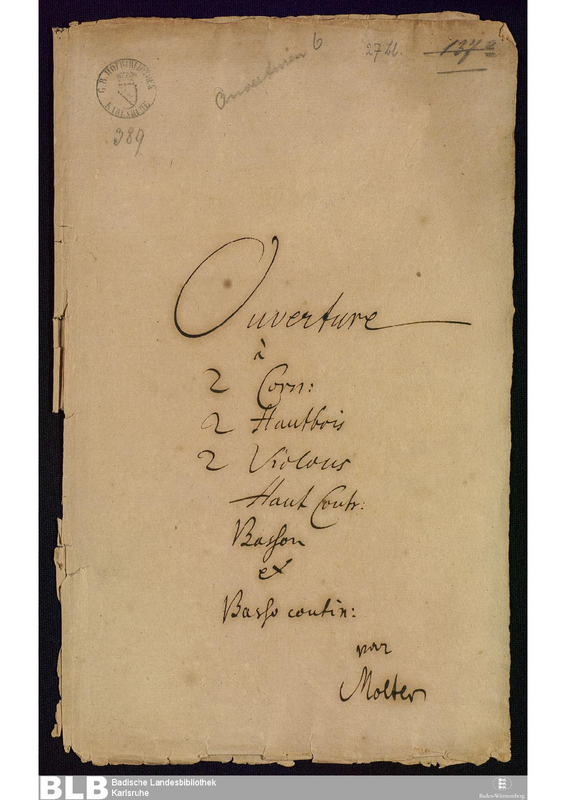 G. B. HOFBIBLIOTHEK
KARLSRUHE
389
Ouvertüren 6
27 Bl.
Ouverture
à
2 Corn:
2 Hautbois
2 Violons
Haut Contr:
Basson
et
Basso contin:
par
Molter
BLB Badische Landesbibliothek
Karlsruhe
Baden-Württemberg